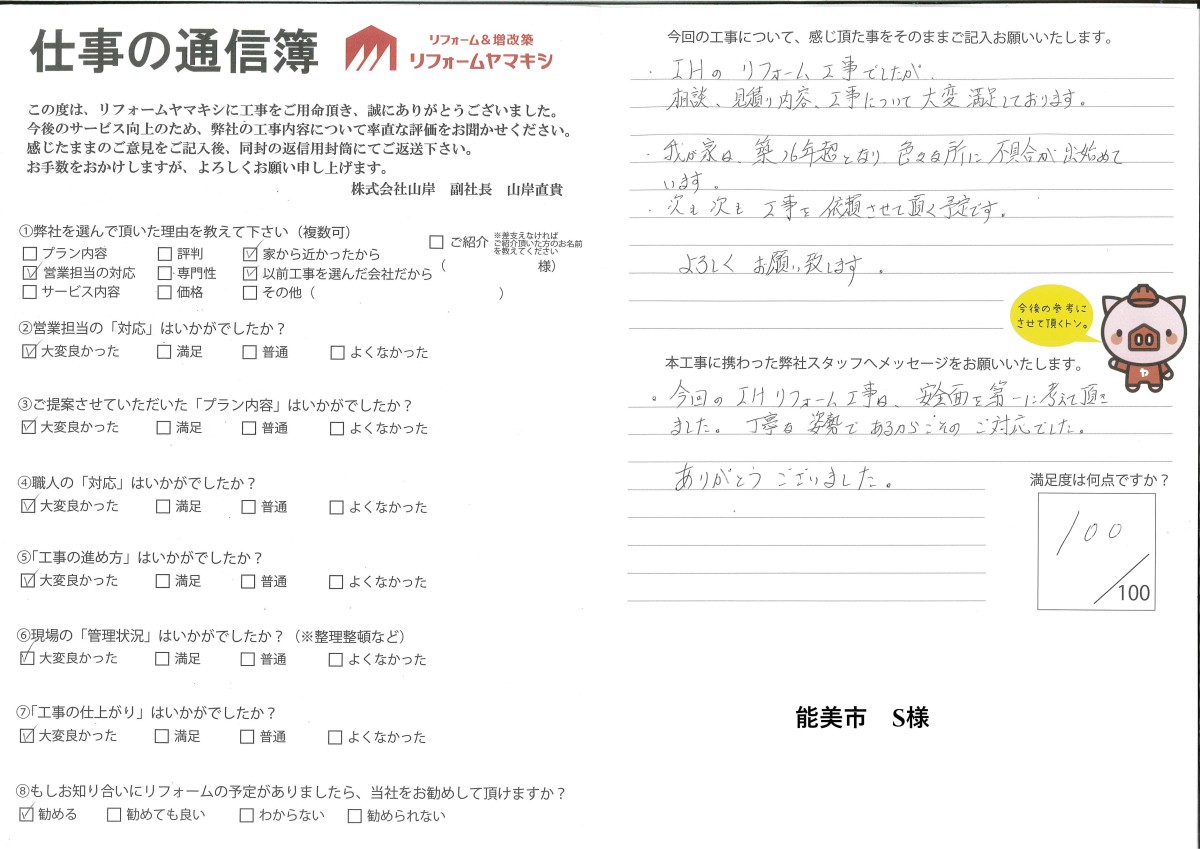 仕事の通信簿
リフォーム＆増改築
リフォームヤマキシ
この度は、リフォームヤマキシに工事をご用命頂き、誠にありがとうございました。
今後のサービス向上のため、弊社の工事内容について率直な評価をお聞かせください。
感じたままのご意見をご記入後、同封の返信用封筒にてご返送下さい。
お手数をおかけしますが、よろしくお願い申し上げます。
株式会社山岸　副社長　山岸直貴
①弊社を選んで頂いた理由を教えて下さい（複数可）
□プラン内容　□評判　☑家から近かったから　□ご紹介　※差支えなければ
ご紹介頂いた方のお名前
を教えてください
☑営業担当の対応　□専門性　☑以前工事を選んだ会社だから　（　　様）
□サービス内容　□価格　□その他（　　）
②営業担当の「対応」はいかがでしたか？
☑大変良かった　□満足　□普通　□よくなかった
③ご提案させていただいた「プラン内容」はいかがでしたか？
☑大変良かった　□満足　□普通　□よくなかった
④職人の「対応」はいかがでしたか？
☑大変良かった　□満足　□普通　□よくなかった
⑤「工事の進め方」はいかがでしたか？
☑大変良かった　□満足　□普通　□よくなかった
⑥現場の「管理状況」はいかがでしたか？（※整理整頓など）
☑大変良かった　□満足　□普通　□よくなかった
⑦「工事の仕上がり」はいかがでしたか？
☑大変良かった　□満足　□普通　□よくなかった
⑧もしお知り合いにリフォームの予定がありましたら、当社をお勧めして頂けますか？
☑勧める　□勧めても良い　□わからない　□勧められない
今回の工事について、感じ頂た事をそのままご記入お願いいたします。
・IHの リフォーム工事でしたが、
相談、見積り内容、工事について 大変 満足しております。
・我が家は、築26年超となり 色々な所に 不具合が 出始めて
います。
・次も 次も 工事を 依頼させて頂く予定です。
よろしく お願い致します。
今後の参考に
させて頂くトン。
ヤ
本工事に携わった弊社スタッフへメッセージをお願いいたします。
・今回の IHリフォーム工事は、安全面を第一に考えて頂き
ました。丁寧な 姿勢で あるからこその ご対応でした。
ありがとう ございました。
満足度は何点ですか？
100
/100
能美市　S様